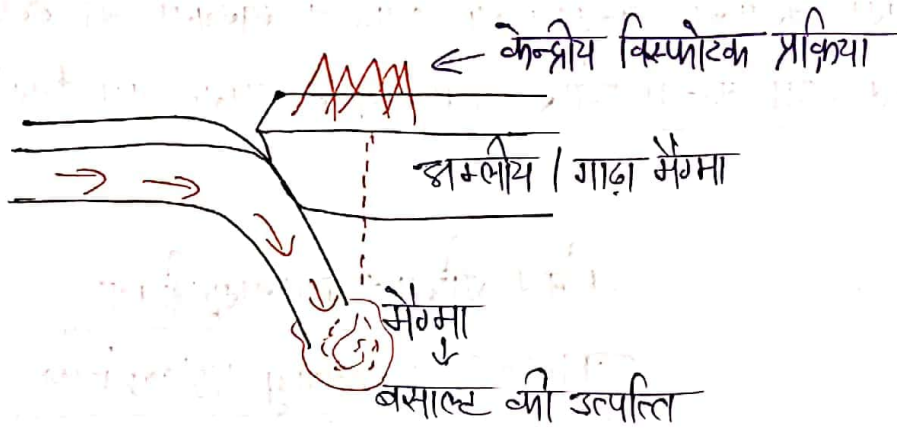 ← केन्द्रीय विस्फोटक प्रक्रिया
अम्लीय / गाढ़ा मैग्मा
मैग्मा
↓
बसाल्ट की उत्पत्ति